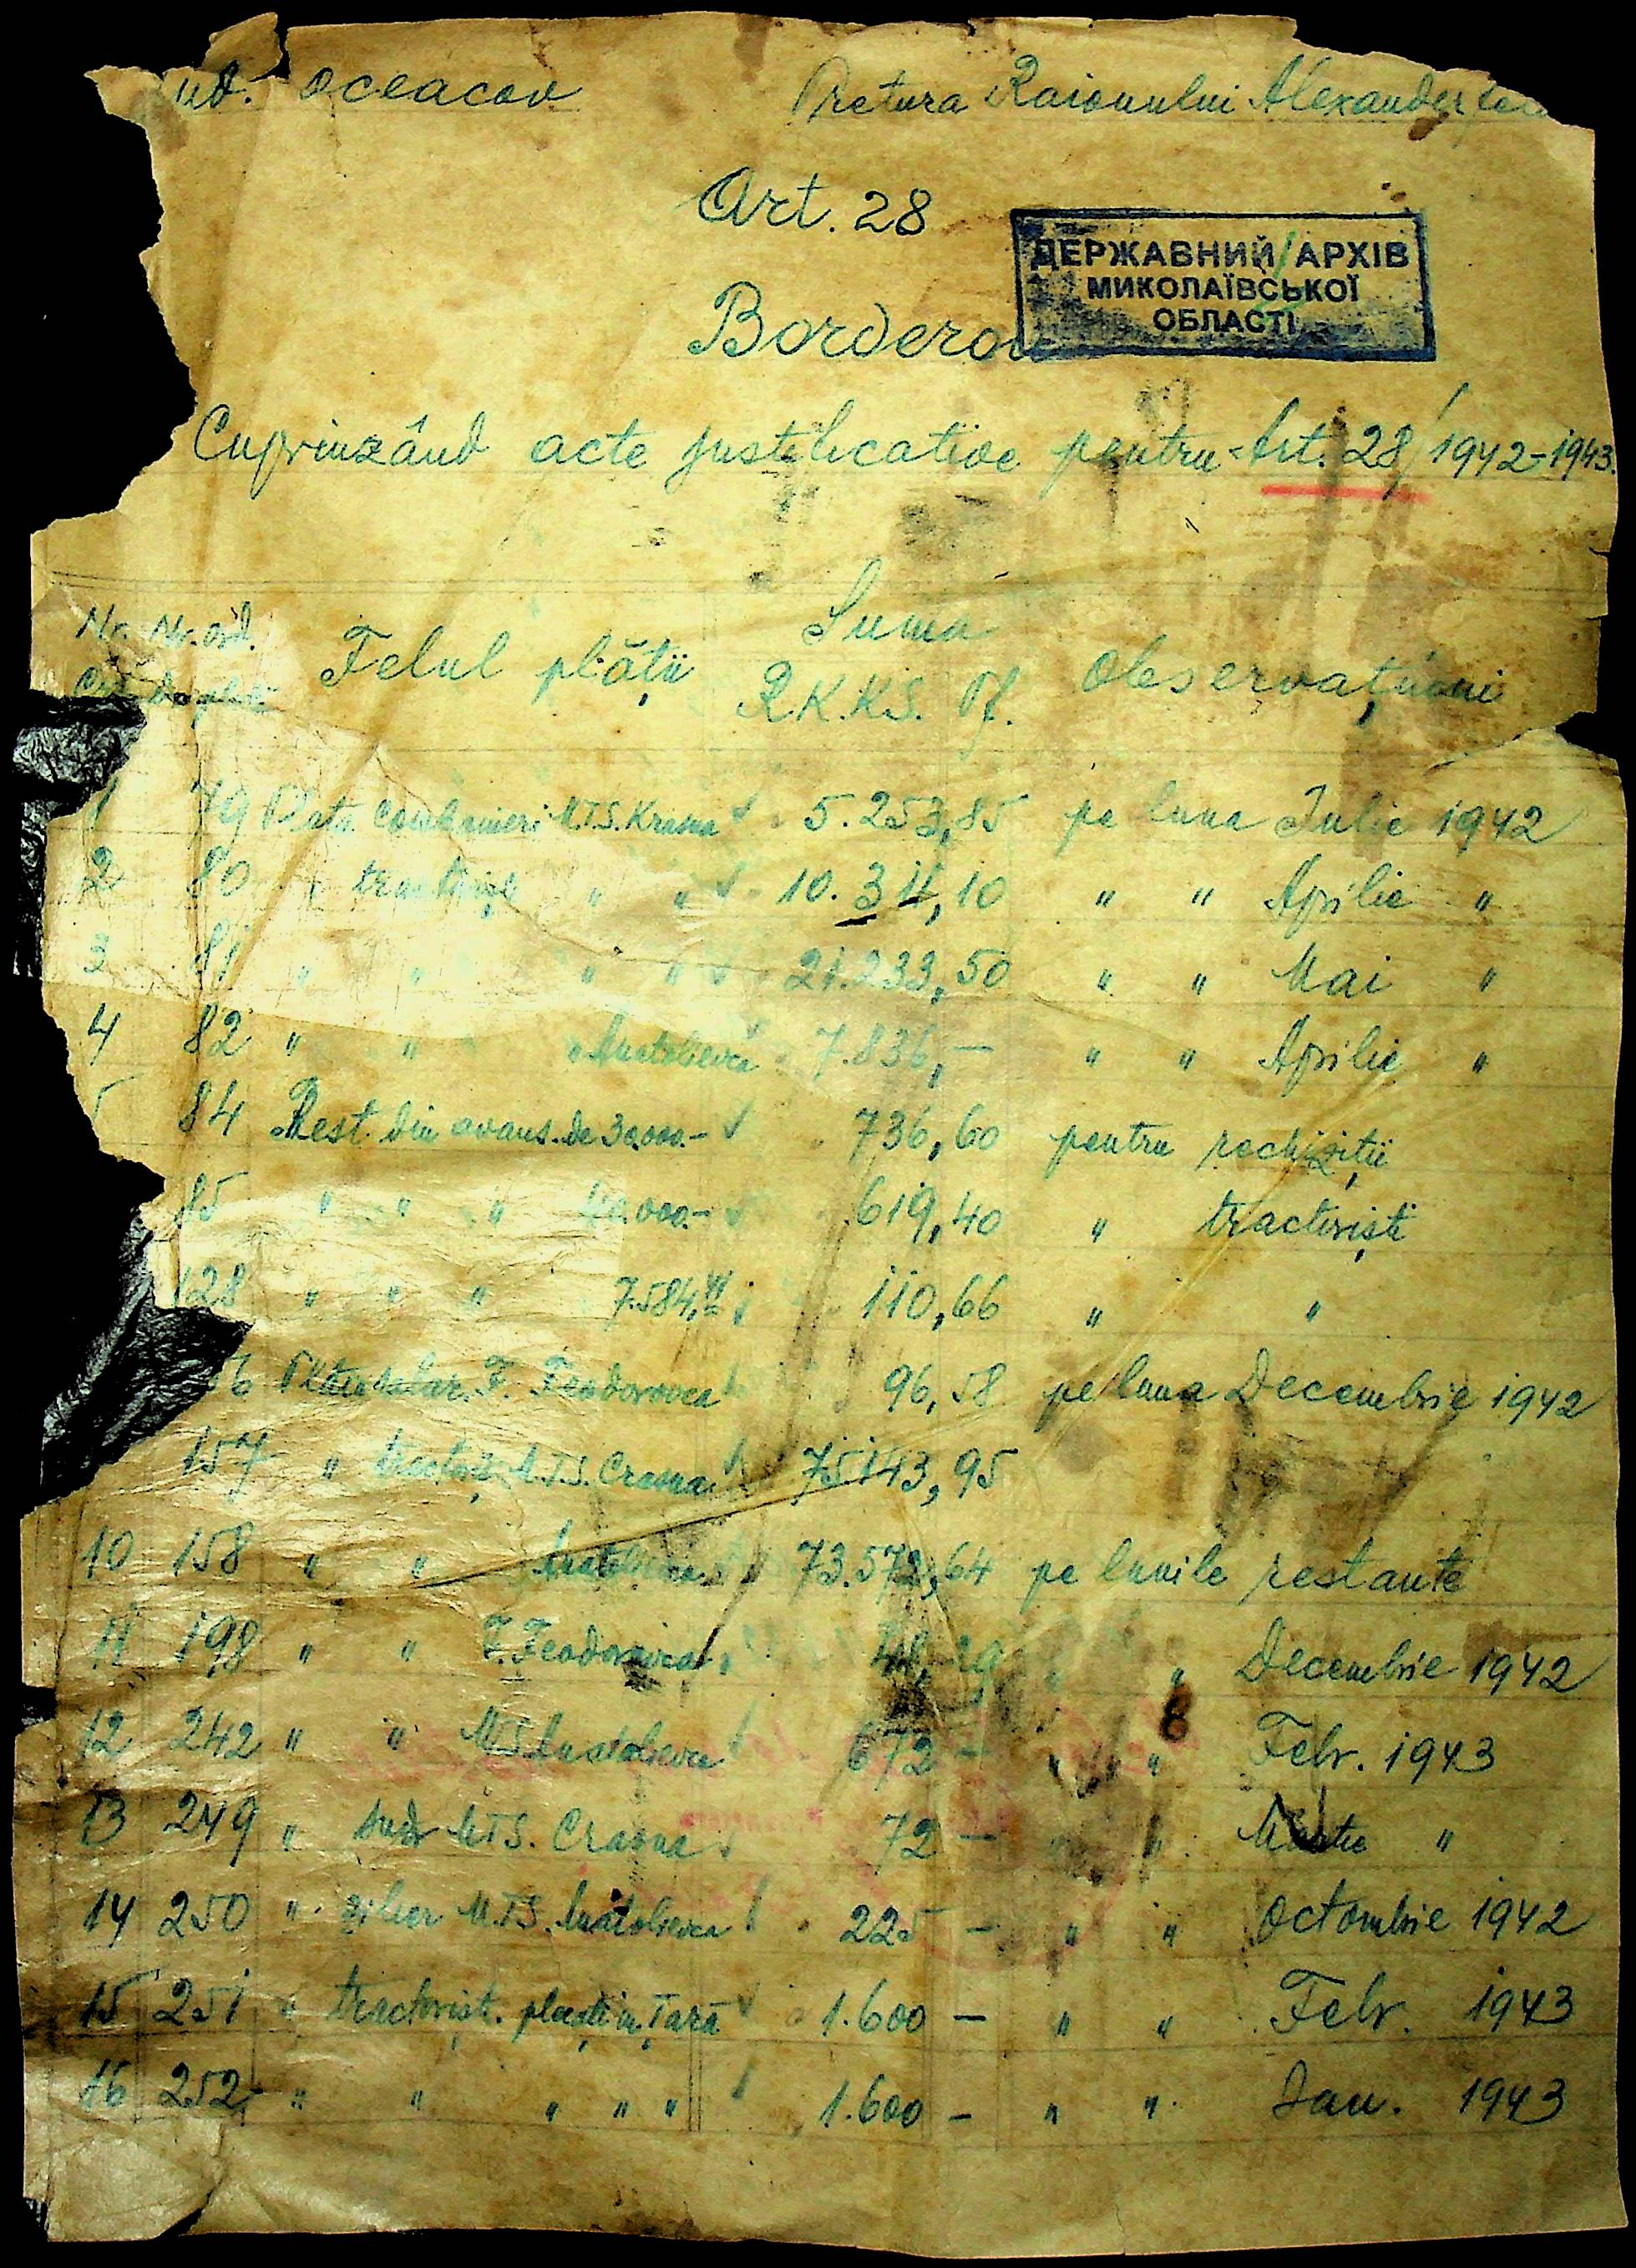 ud. Oceacov Pretura Raionului Alexander
Art. 28
ДЕРЖАВНИЙ АРХІВ
МИКОЛАЇВСЬКОЇ
ОБЛАСТІ
Borderou
Cuprinzând acte justificative pentru Art. 28/1942-1943.
Nr. Nr. ord. Felul plății Suma Observațiuni
de plată R.K.K.S. Pf.
1 79 Plata Combaineri M.T.S. Krasna 5.253,85 pe luna Iulie 1942
2 80 " tractoriști " " 10.311,10 " " Aprilie "
3 81 " " " " 21.233,50 " " Mai "
4 82 " " " Anatolievca 7.836,— " " Aprilie "
5 84 Rest din avans de 30.000.- 736,60 pentru rechiziții
85 " " " 40.000.- 619,40 " tractoriști
128 " " " 7.584, 110,66 " "
56 Plata salar. F. Feodorovca 96,58 pe luna Decembrie 1942
157 " tractoriș. M.T.S. Crasna 75143,95
10 158 " " Anatolievca 73.572,64 pe lunile restante
11 198 " " F. Feodorovca " " Decembrie 1942
12 242 " " MTS Anatolievca 672 — " " Febr. 1943
13 249 " MTS. Crasna 72 — " " Martie "
14 250 " zilier M.T.S. Anatolievca 225 — " " Octombrie 1942
15 251 " tractorișt. plecați in Țară 1.600 — " " Febr. 1943
16 252 " " " " " 1.600 — " " Ian. 1943